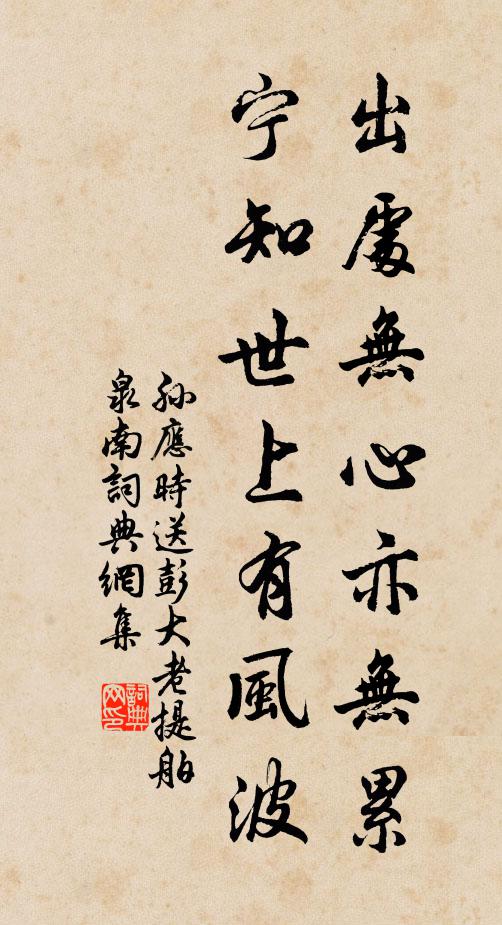 出處無心亦無累
宁知世上有風波
孫應時送彭大老提舶
泉南詞典網集
詞典网印